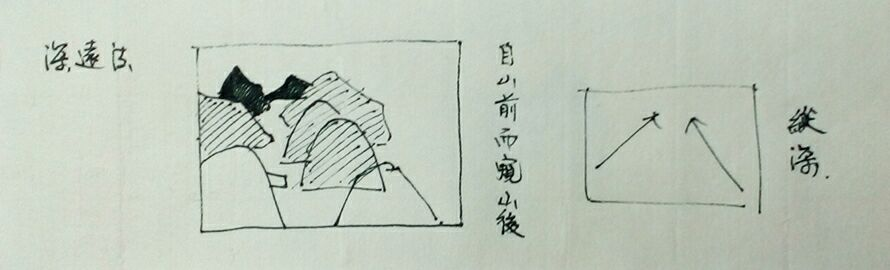 深遠法
自山前而窺山後
縱深.